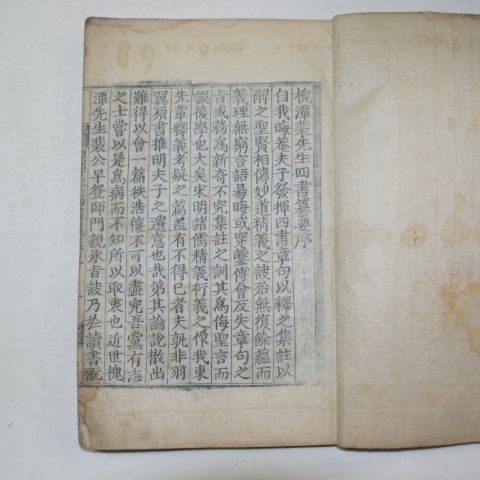 槐潭裴先生四書纂要序
自我晦菴夫子發揮四書章句以釋之集註以
解之聖賢相傳妙道精義之訣殆無復餘蘊而
義理無窮言語易晦或穿鑿傅會反失章句之
旨或務爲新奇不究集註之訓其爲侮聖言而
誤後學也大矣宋明諸儒精義衍義之作我東
先輩釋義考疑之篇盖有不得已者夫孰非羽
翼原書推明夫子之遺意也哉第其論說散出
難得以會一篇秩浩穰不可以盡究吾黨有志
之士嘗以是爲病而不知所以取衷也近世槐
潭先生裴公早登師門親承旨訣乃於讀書翫